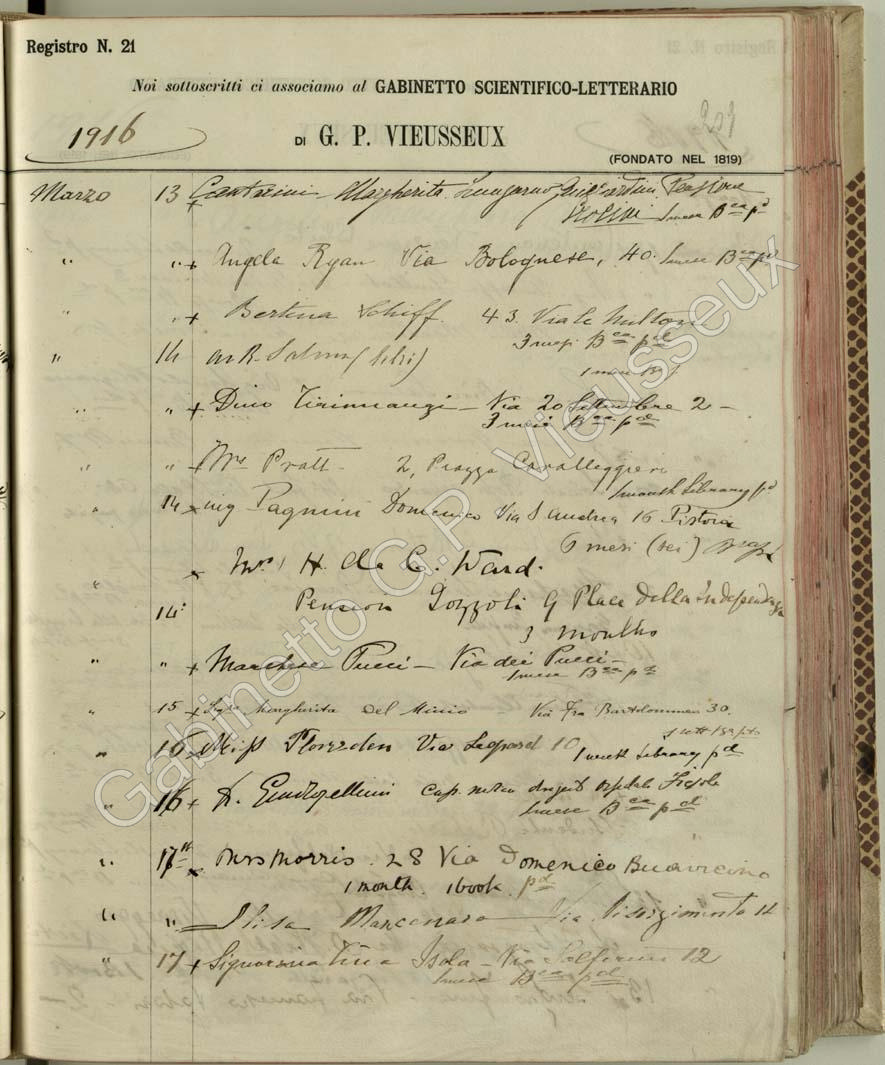 Registro N. 21
Noi sottoscritti ci associamo al GABINETTO SCIENTIFICO-LETTERARIO
1916
DI G. P. VIEUSSEUX
(FONDATO NEL 1819)
Marzo 13 Margherita Lungarno Guicciardini Pensione
1 mese Bca pd
" " + Angela Ryan Via Bolognese, 40. 1 mese Bca pd
" " + Bertina Schiff 43. Viale Milton
3 mesi Bca pd
" 14
1 mese
" " + Dino Via 20 Settembre 2 -
3 mesi Bca pd
" " + Mrs Pratt - 2, Piazza Cavalleggieri
1 month Library pd
" 14 x ing Pagnini Domenico Via S Andrea 16 Pistoia
6 mesi (sei)
" x Mrs H. de C. Ward.
14 Pension Gozzoli 9 Place della Independenza
3 months
" " + Marchese Pucci - Via dei Pucci -
1 mese Bca pd
" 15 + Margherita Del Minio - Via Fra Bartolommeo 30.
" 16 Miss Via 10
1 week Library pd
" 16 + Cap. Ospedale Fiesole
1 mese Bca pd
" 17th x Mrs Morris. 28 Via Domenico
1 month. 1 book. pd
" " Elisa Marcenaro Via Risorgimento
" 17 + Signorina Isola - Via Solferino 12
1 mese Bca pd
Gabinetto G.P. Vieusseux